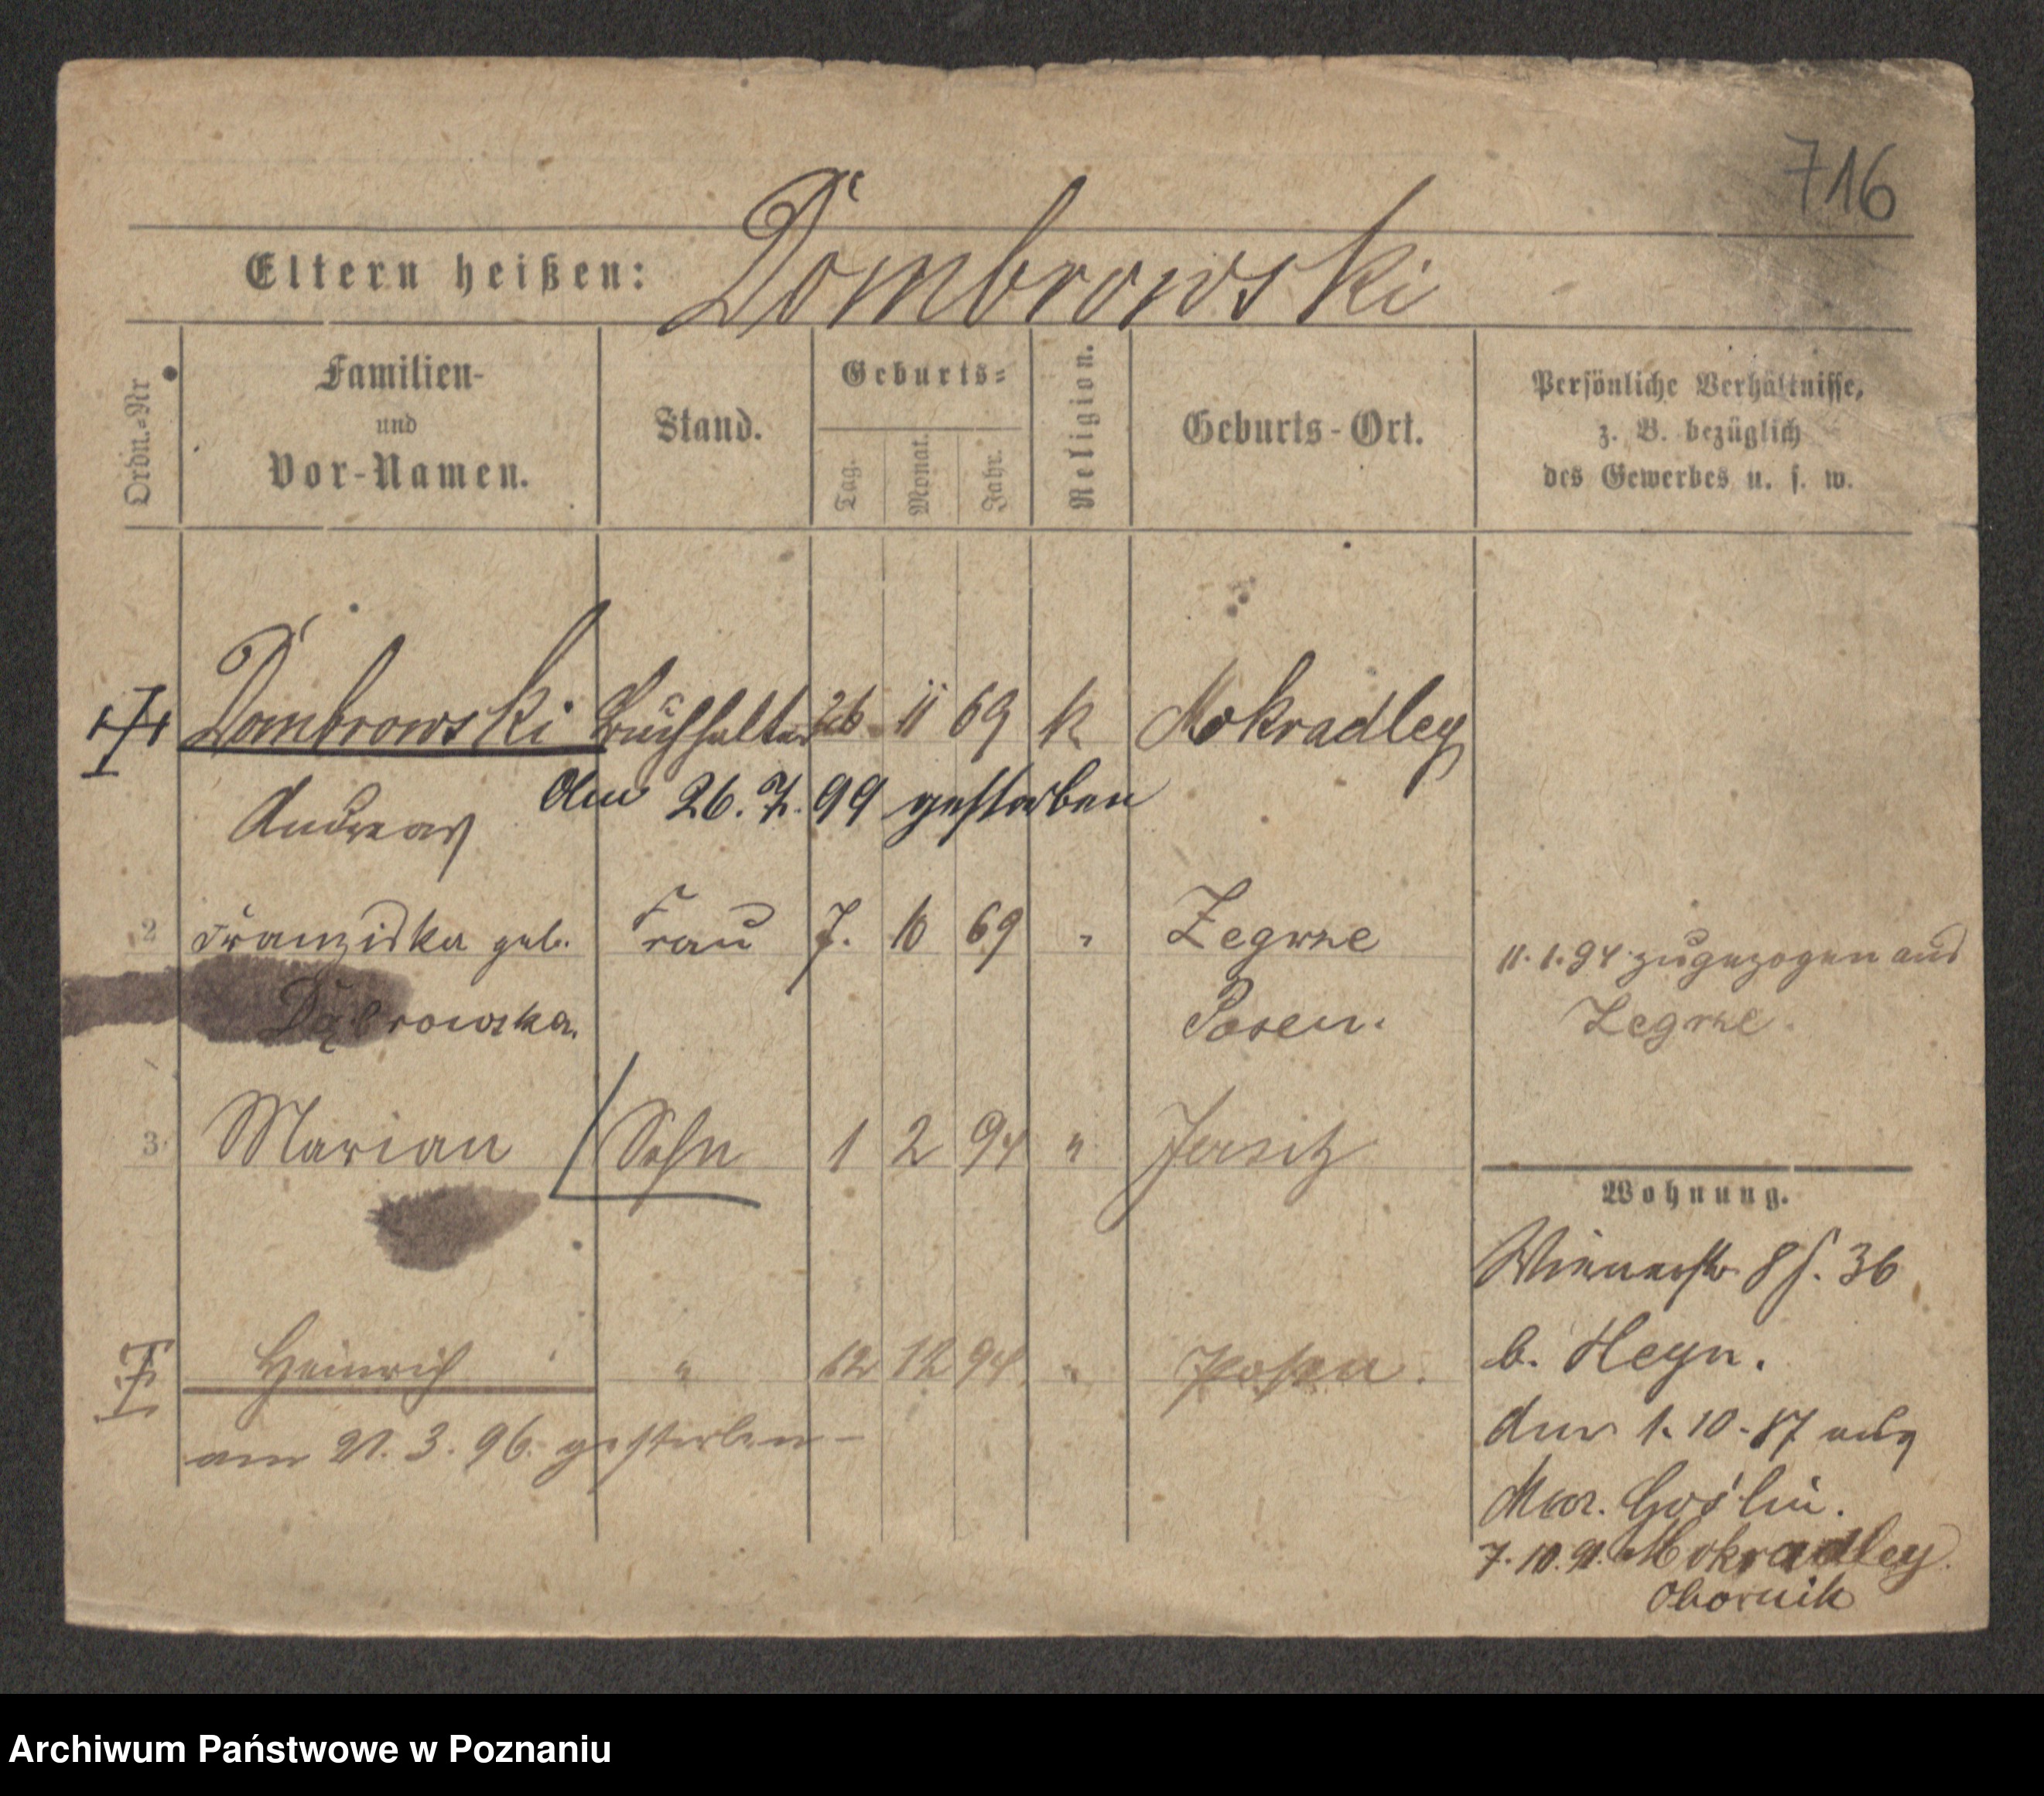 716
Eltern heißen: Dombrowski
Ordn.-Nr
Familien-
und
Vor-Namen.
Stand.
Geburts-
Tag.
Monat.
Jahr.
Religion.
Geburts-Ort.
Persönliche Verhältnisse,
z. B. bezüglich
des Gewerbes u. s. w.
Dombrowski Buchhalter 26 11 69 k Mokradley
Am 26. 7. 99 gestorben
Andreas
2 Franziska geb. Frau 7. 10 69 " Zegrze
11.1.94 zugezogen aus
Dąbrowska. Posen.
Zegrze.
3 Marian Sohn 1 2 94 " Jersitz
Wohnung.
Wienerstr 8 36
Heinrich " 12 12 94 " Posen.
b. Heyn.
am 21. 3. 96. gestorben
1. 10. 87 aus
Mur. Goślin.
7. 10. 91. Mokradley
Obornik
Archiwum Państwowe w Poznaniu